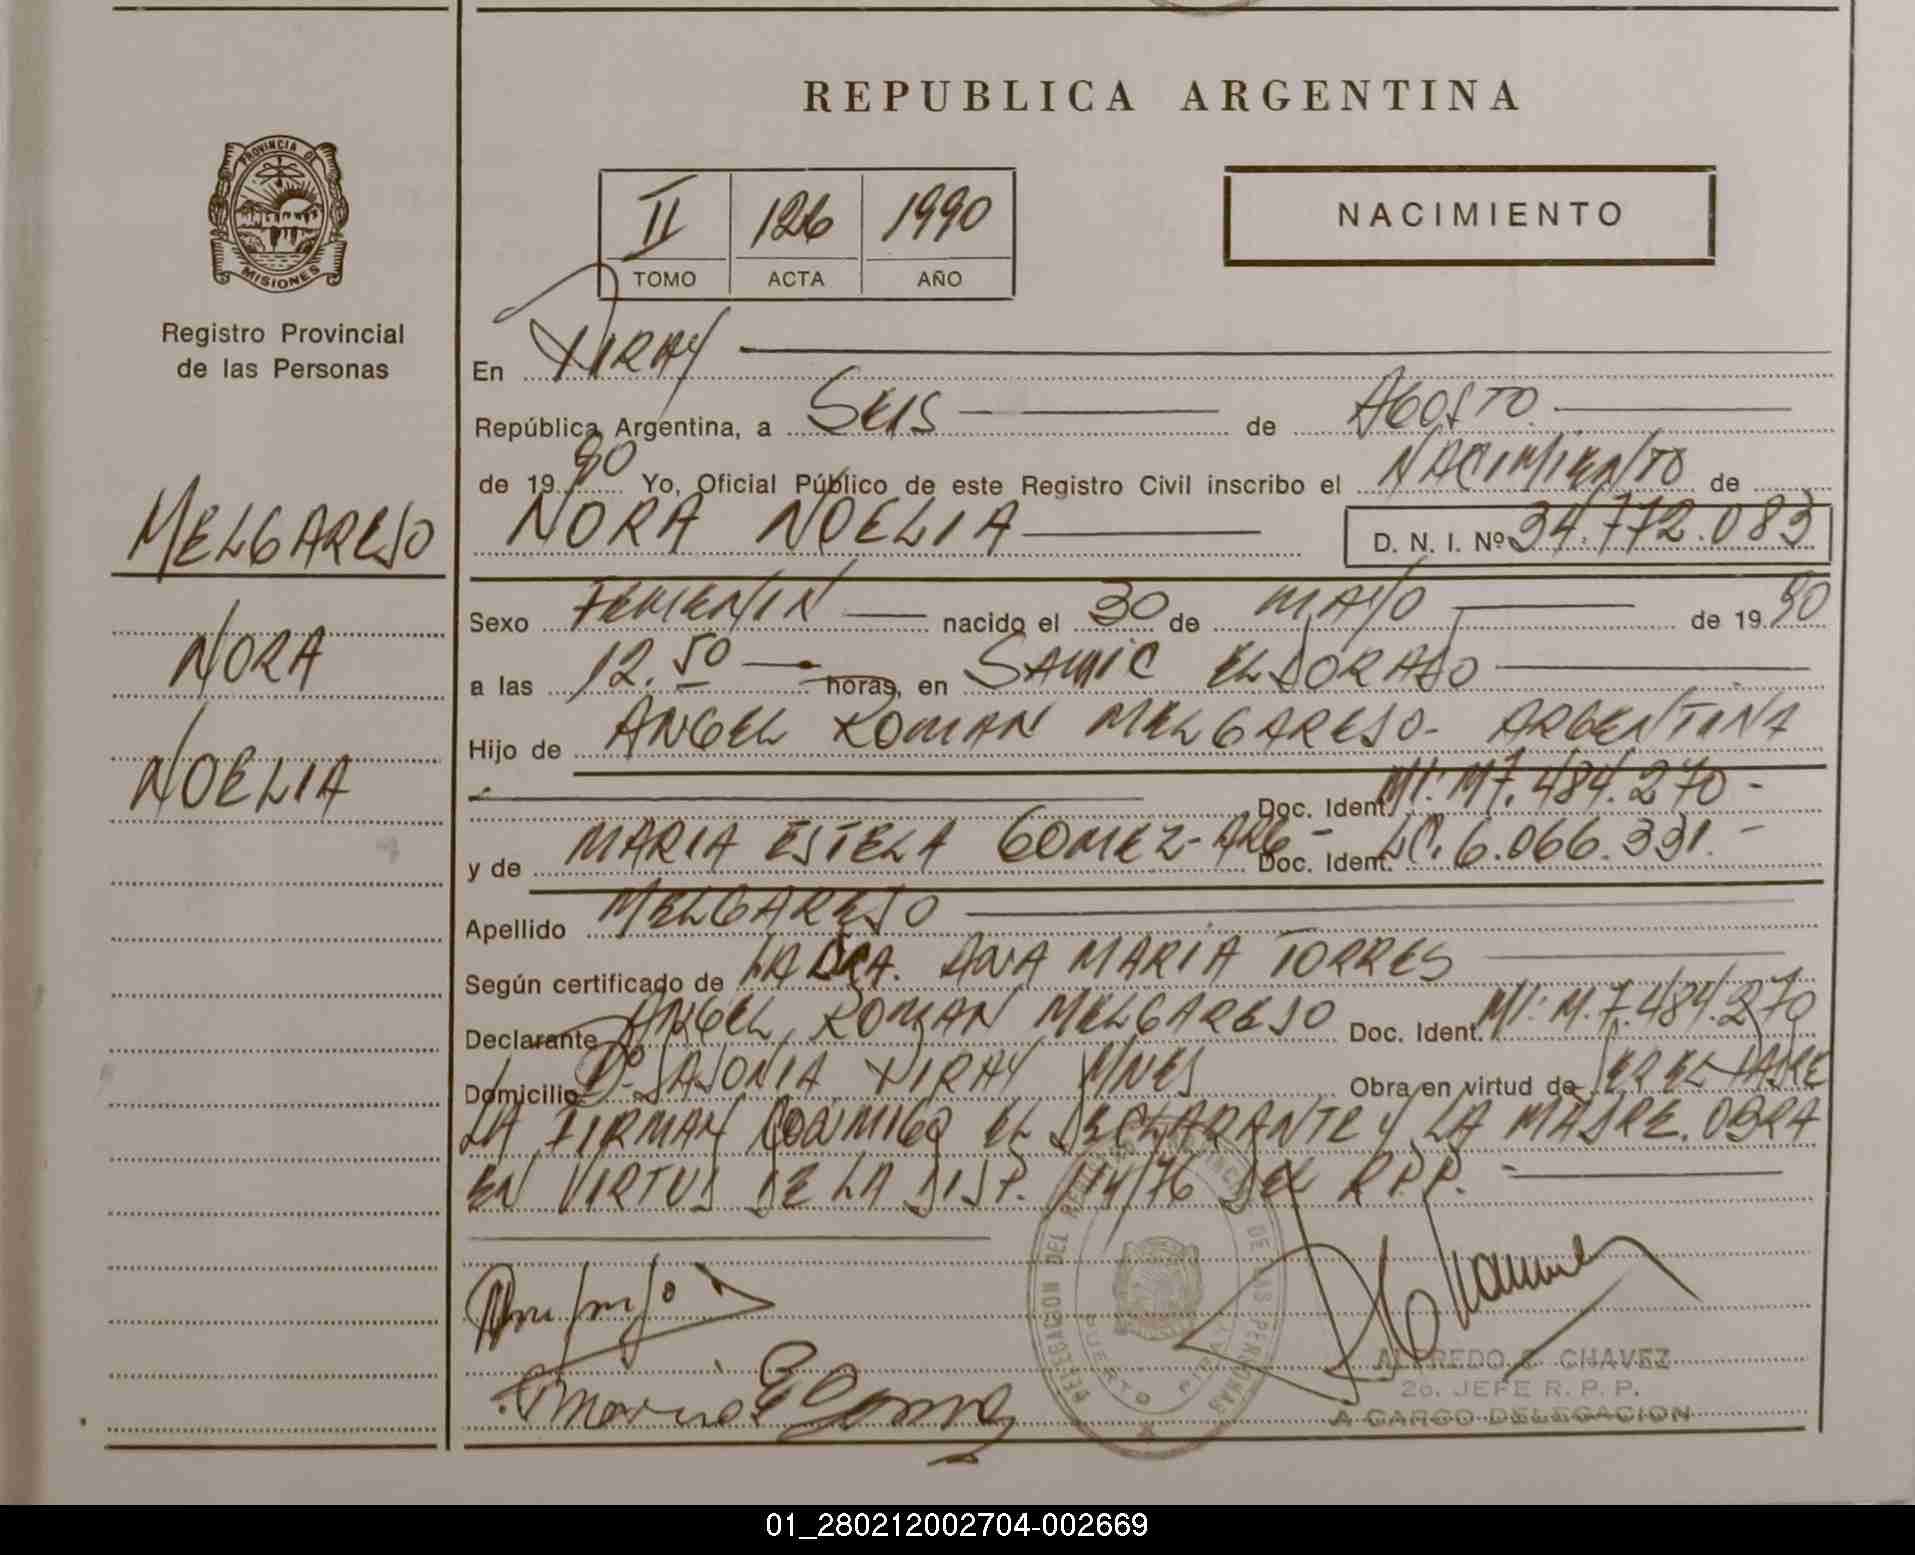 REPUBLICA ARGENTINA
PROVINCIA DE
MISIONES
Registro Provincial
de las Personas
II 126 1990
TOMO ACTA AÑO
NACIMIENTO
En PIRAY
República Argentina, a SEIS de AGOSTO
de 1990 Yo, Oficial Público de este Registro Civil inscribo el NACIMIENTO de
MELGAREJO
NORA
NOELIA
NORA NOELIA D. N. I. Nº 34.772.083
Sexo FEMENIN nacido el 30 de MAYO de 1990
a las 12.50 horas, en SAMIC ELDORADO
Hijo de ANGEL ROMAN MELGAREJO- ARGENTINA
Doc. Ident. MI: M7.484.270-
y de MARIA ESTELA GOMEZ- ARG- Doc. Ident. LC. 6.066.331.-
Apellido MELGAREJO
Según certificado de LA DRA. ANA MARIA TORRES
Declarante ANGEL ROMAN MELGAREJO Doc. Ident. MI: M.7.484.270
Domicilio Bº SAJONIA PIRAY MNES Obra en virtud de SER EL PADRE
LA FIRMAN CONMIGO EL DECLARANTE Y LA MADRE. OBRA
EN VIRTUD DE LA DISP. 114/76 DEL R.P.P.
DELEGACION DEL REGISTRO PROVINCIAL DE LAS PERSONAS
PUERTO PIRAY
Maria E Gomez
ALFREDO C. CHAVEZ
2o. JEFE R. P. P.
A CARGO DELEGACION
01_280212002704-002669